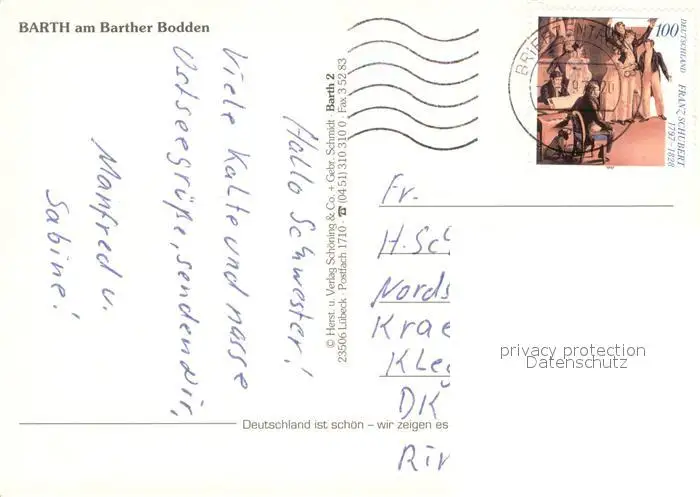 BARTH am Barther Bodden
Hallo Schwester!
Viele Kalte und nasse
Ostseegrüße, senden dir,
Manfred u.
Sabine!
© Herst. u. Verlag Schöning & Co. + Gebr. Schmidt · Barth 2
23506 Lübeck · Postfach 1710 · ☎ (04 51) 310 310 0 · Fax 3 52 83
Deutschland ist schön – wir zeigen es
100
DEUTSCHLAND
FRANZ SCHUBERT
1797–1828
Fr.
H. Sc
Nords
Krae
Kle
DK
Rin
privacy protection
Datenschutz